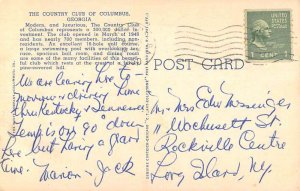 THE COUNTRY CLUB OF COLUMBUS,
GEORGIA
Modern, and luxurious, The Country Club
of Columbus represents a 500,000 dollar in
vestment. The club opened in March of 1948
and has nearly 700 members, including non-
residents. An excellent 18-hole golf course,
a large swimming pool with overlooking ter-
races, spacious ball room, and dining room
are some of the many facilities of this beauti-
ful club that creates the aura of a luxury
passengered
We are leaving here to-
morrow + driving home
thru Kentucky + Tennessee
Temp is on 90° down
here but having a grand
time. Marion + Jack
POST CARD
1 CENT
Mr + Mrs Edw Messenger
11 Wachusett St.
Rockville Centre
Long Island, N.Y.